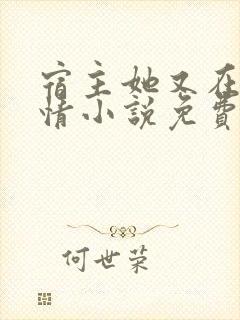 宿主她又在
情小說免費
何世荣